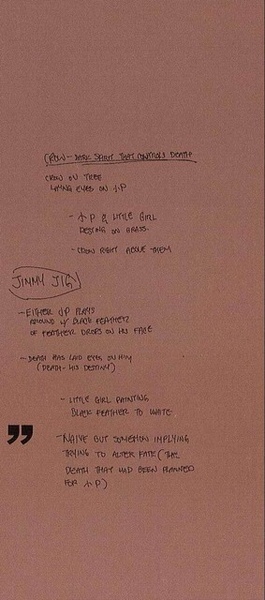 CROW - DARK SPIRIT THAT CONTROLS DEATH
CROW ON TREE
LAYING EYES ON J.P
- J.P & LITTLE GIRL
RESTING ON GRASS
- CROW RIGHT ABOVE THEM
JIMMY JIG
- EITHER J.P PLAYS
AROUND W/ BLACK FEATHERZ
OR FEATHER DROPS ON HIS FACE
- DEATH HAS LAID EYES ON HIM
(DEATH - HIS DESTINY)
- LITTLE GIRL PAINTING
BLACK FEATHER TO WHITE
- NAIVE BUT SOMEHOW IMPLYING
TRYING TO ALTER FATE (THE
DEATH THAT HAD BEEN PLANNED
FOR J.P)
”